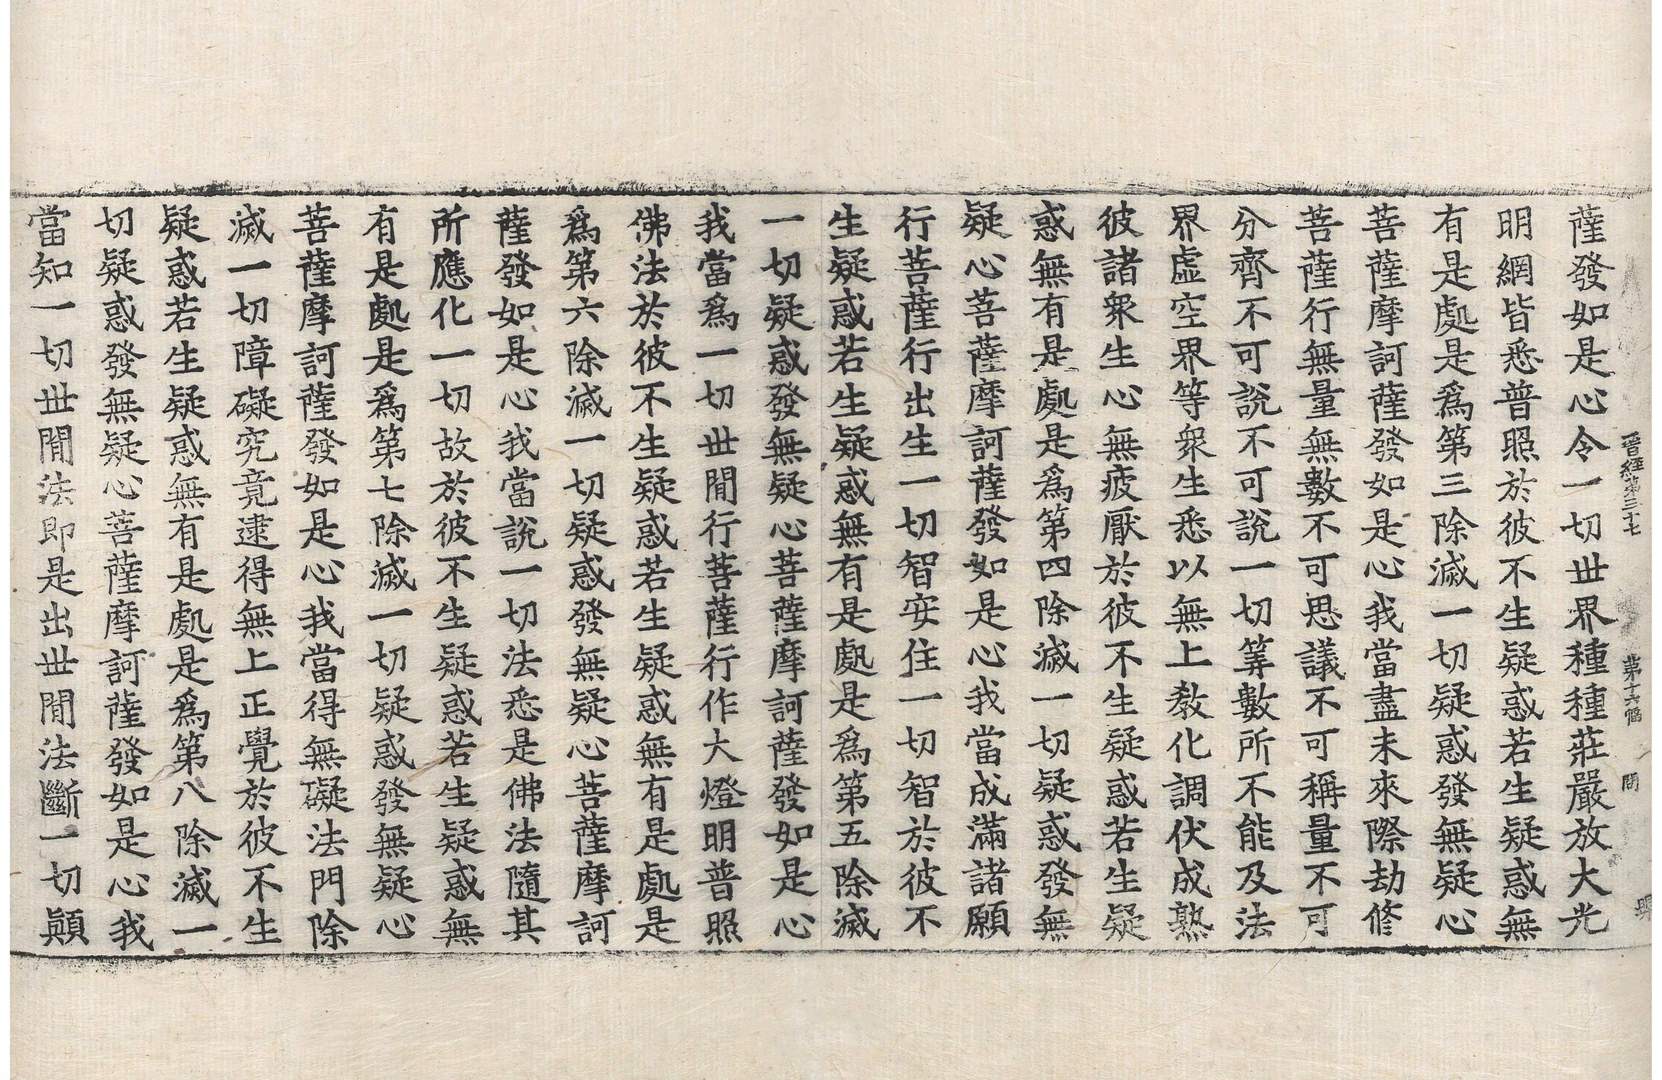 晉經第三十七 第十六幅 問
薩發如是心令一切世界種種莊嚴放大光
明網皆悉普照於彼不生疑惑若生疑惑無
有是處是爲第三除滅一切疑惑發無疑心
菩薩摩訶薩發如是心我當盡未來際劫修
菩薩行無量無數不可思議不可稱量不可
分齊不可說不可說一切等數所不能及法
界虛空界等衆生悉以無上教化調伏成熟
彼諸衆生心無疲厭於彼不生疑惑若生疑
惑無有是處是爲第四除滅一切疑惑發無
疑心菩薩摩訶薩發如是心我當成滿諸願
行菩薩行出生一切智安住一切智於彼不
生疑惑若生疑惑無有是處是爲第五除滅
一切疑惑發無疑心菩薩摩訶薩發如是心
我當爲一切世閒行菩薩行作大燈明普照
佛法於彼不生疑惑若生疑惑無有是處是
爲第六除滅一切疑惑發無疑心菩薩摩訶
薩發如是心我當說一切法悉是佛法隨其
所應化一切故於彼不生疑惑若生疑惑無
有是處是爲第七除滅一切疑惑發無疑心
菩薩摩訶薩發如是心我當得無礙法門除
滅一切障礙究竟逮得無上正覺於彼不生
疑惑若生疑惑無有是處是爲第八除滅一
切疑惑發無疑心菩薩摩訶薩發如是心我
當知一切世閒法即是出世閒法斷一切顚